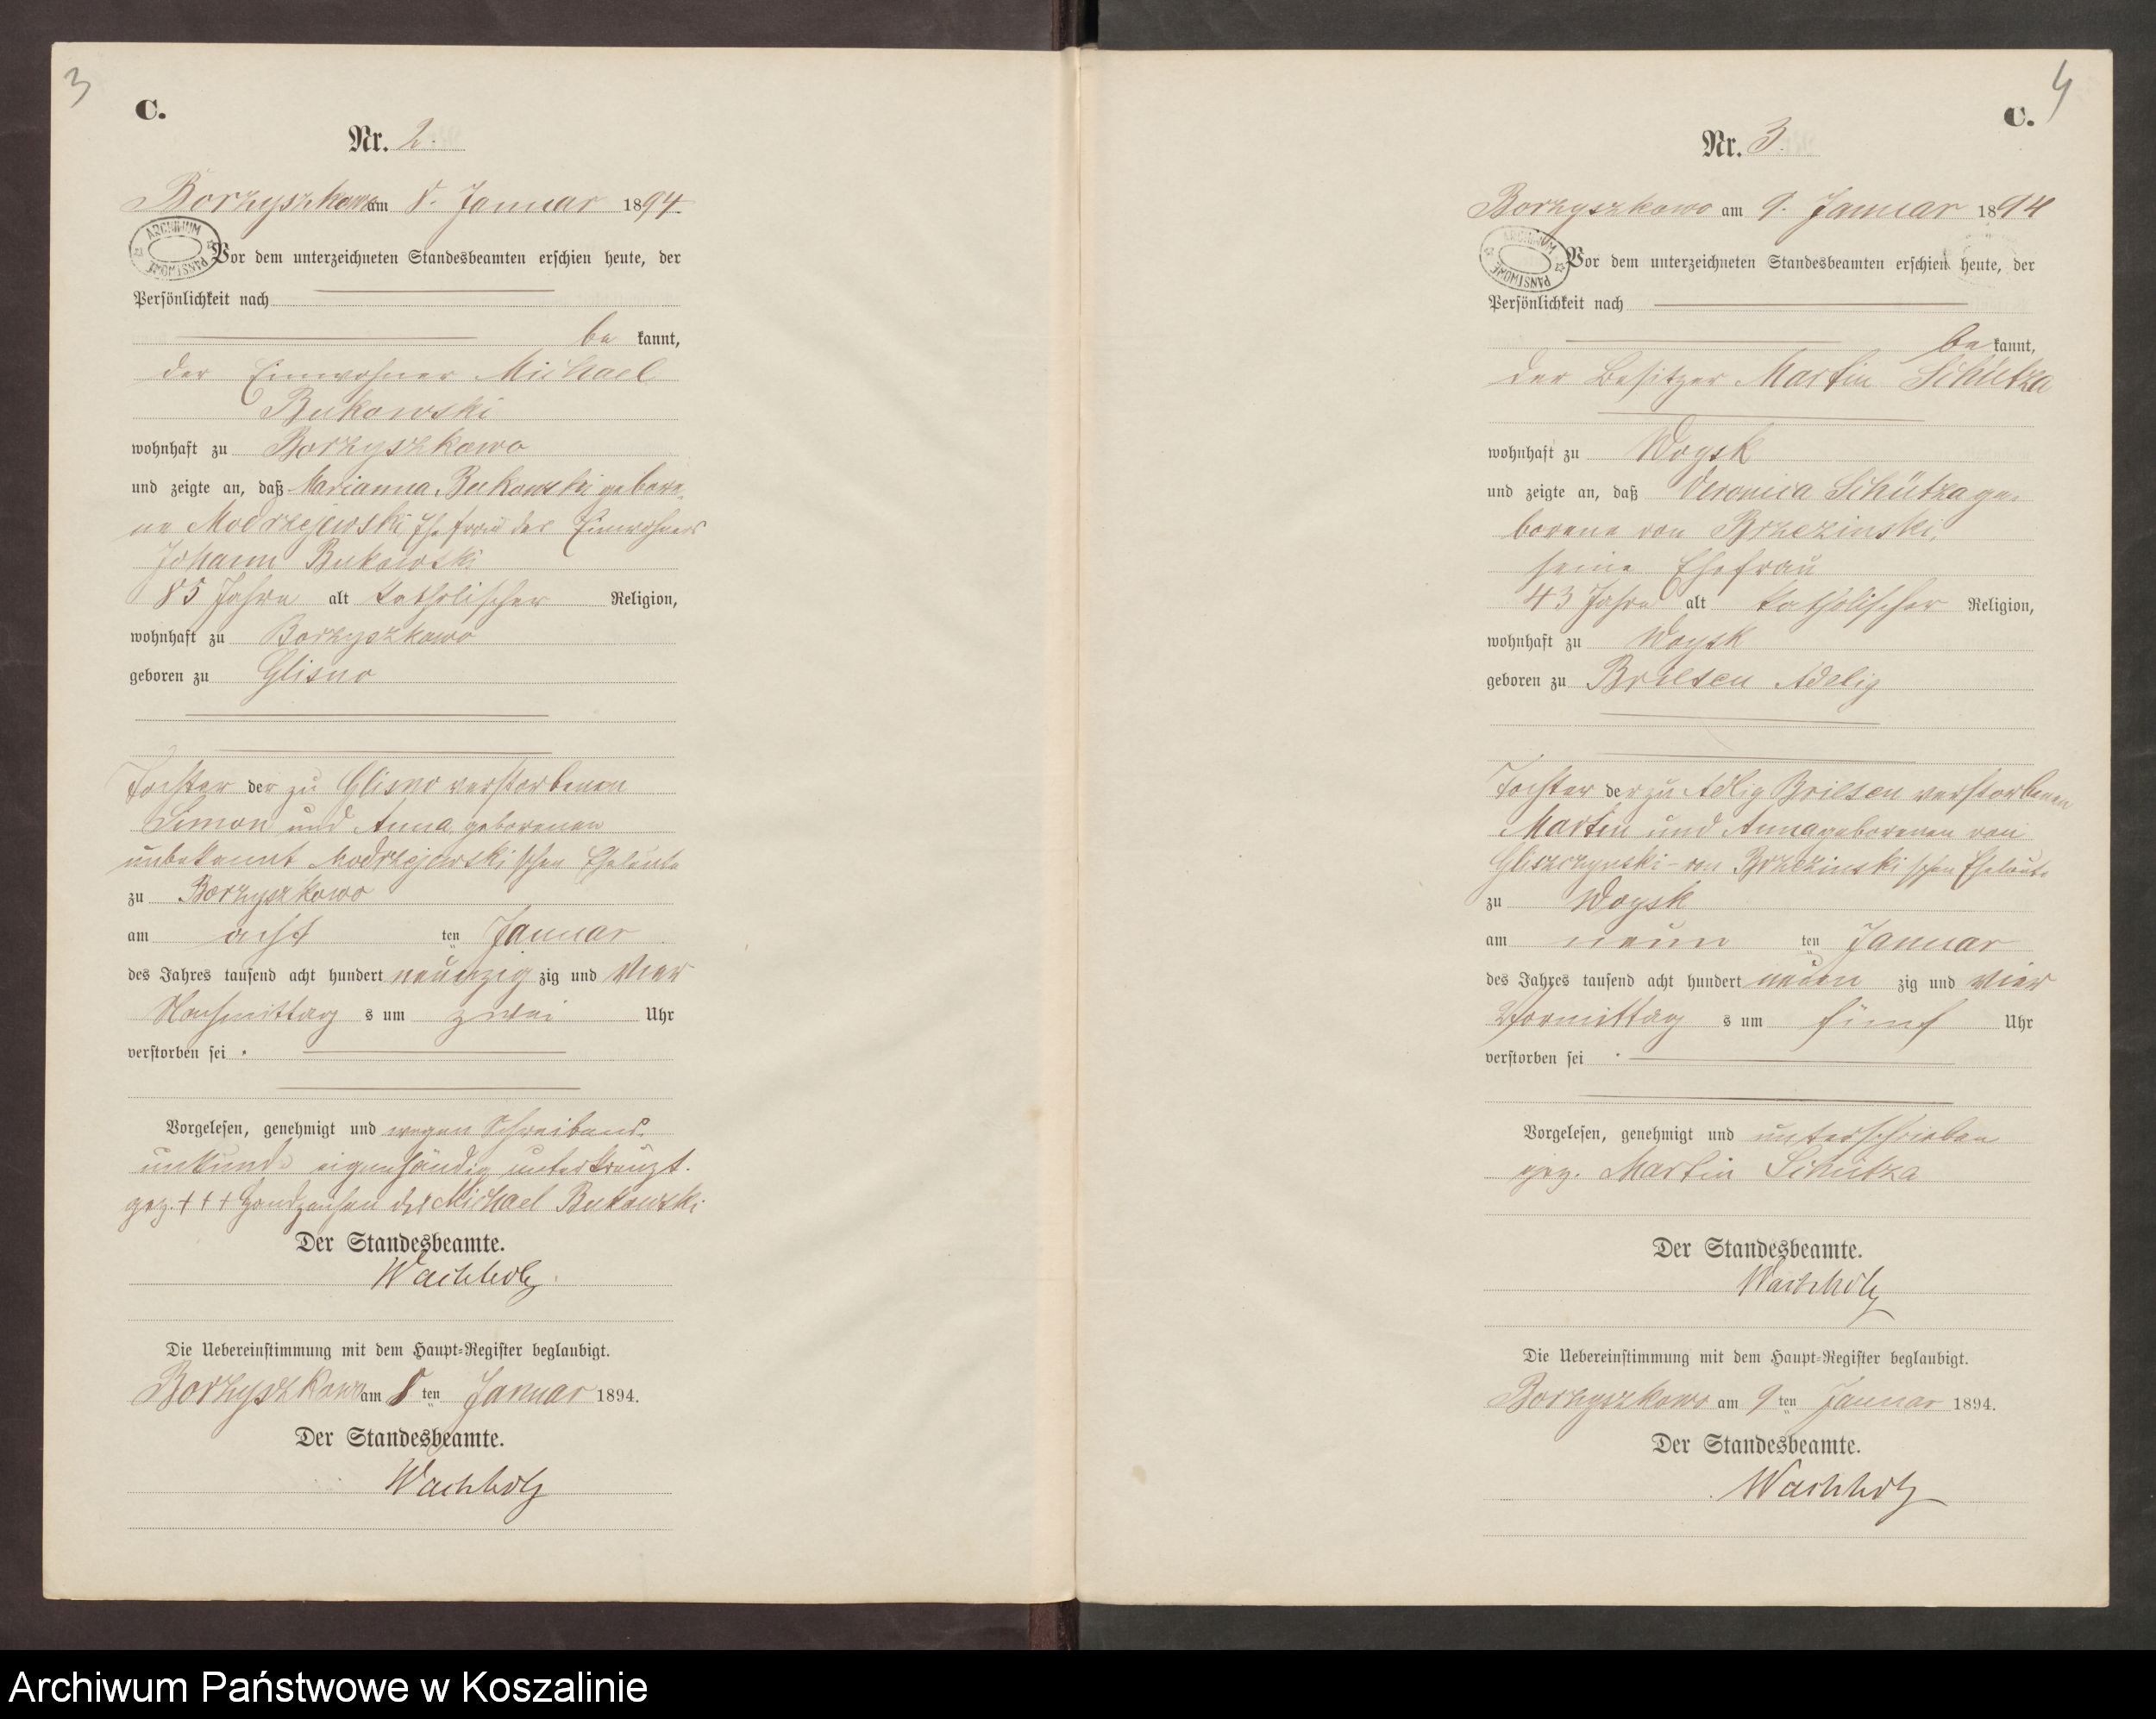 3
C.
Nr. 2.
Borzyszkowo am 8. Januar 1894.
ARCHIWUM PAŃSTWOWE
Vor dem unterzeichneten Standesbeamten erschien heute, der
Persönlichkeit nach
be kannt,
der Einwohner Michael
Bukowski
wohnhaft zu Borzyszkowo
und zeigte an, daß Marianna Bukowski gebore-
ne Modrzejewski Ehefrau des Einwohners
Johann Bukowski
85 Jahre alt katholischer Religion,
wohnhaft zu Borzyszkowo
geboren zu Glisno
Tochter der zu Glisno verstorbenen
Simon und Anna geborenen
unbekannt Modrzejewski'schen Eheleute
zu Borzyszkowo
am acht ten Januar
des Jahres tausend acht hundert neunzig zig und vier
Nachmittag s um zwei Uhr
verstorben sei.
Vorgelesen, genehmigt und wegen Schreibens-
unkunde eigenhändig unterkreuzt.
gez. + + + Handzeichen des Michael Bukowski
Der Standesbeamte.
Wachholz
Die Uebereinstimmung mit dem Haupt-Register beglaubigt.
Borzyszkowo am 8 ten Januar 1894.
Der Standesbeamte.
Wachholz
4
C.
Nr. 3.
Borzyszkowo am 9. Januar 1894
ARCHIWUM PAŃSTWOWE
Vor dem unterzeichneten Standesbeamten erschien heute, der
Persönlichkeit nach
be kannt,
der Besitzer Martin Schütza
wohnhaft zu Woysk
und zeigte an, daß Veronica Schütza ge-
borene von Brzezinski,
seine Ehefrau
43 Jahre alt katholischer Religion,
wohnhaft zu Woysk
geboren zu Briesen Adelig
Tochter der zu Adlig Briesen verstorbenen
Martin und Anna geborenen von
Gliszczynski - von Brzezinski'schen Eheleute
zu Woysk
am neun ten Januar
des Jahres tausend acht hundert neun zig und vier
Vormittag s um fünf Uhr
verstorben sei.
Vorgelesen, genehmigt und unterschrieben
gez. Martin Schütza
Der Standesbeamte.
Wachholz
Die Uebereinstimmung mit dem Haupt-Register beglaubigt.
Borzyszkowo am 9 ten Januar 1894.
Der Standesbeamte.
Wachholz
Archiwum Państwowe w Koszalinie